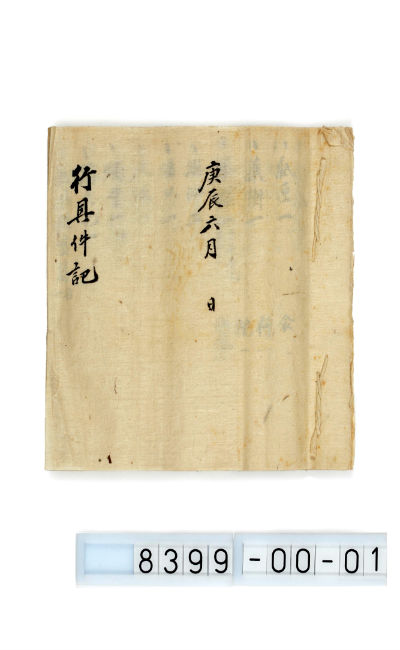 庚辰六月 日
行具件記
8399-00-01